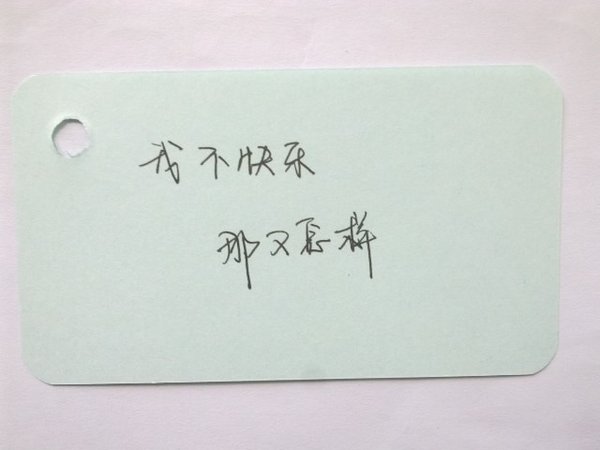 我不快乐
那又怎样